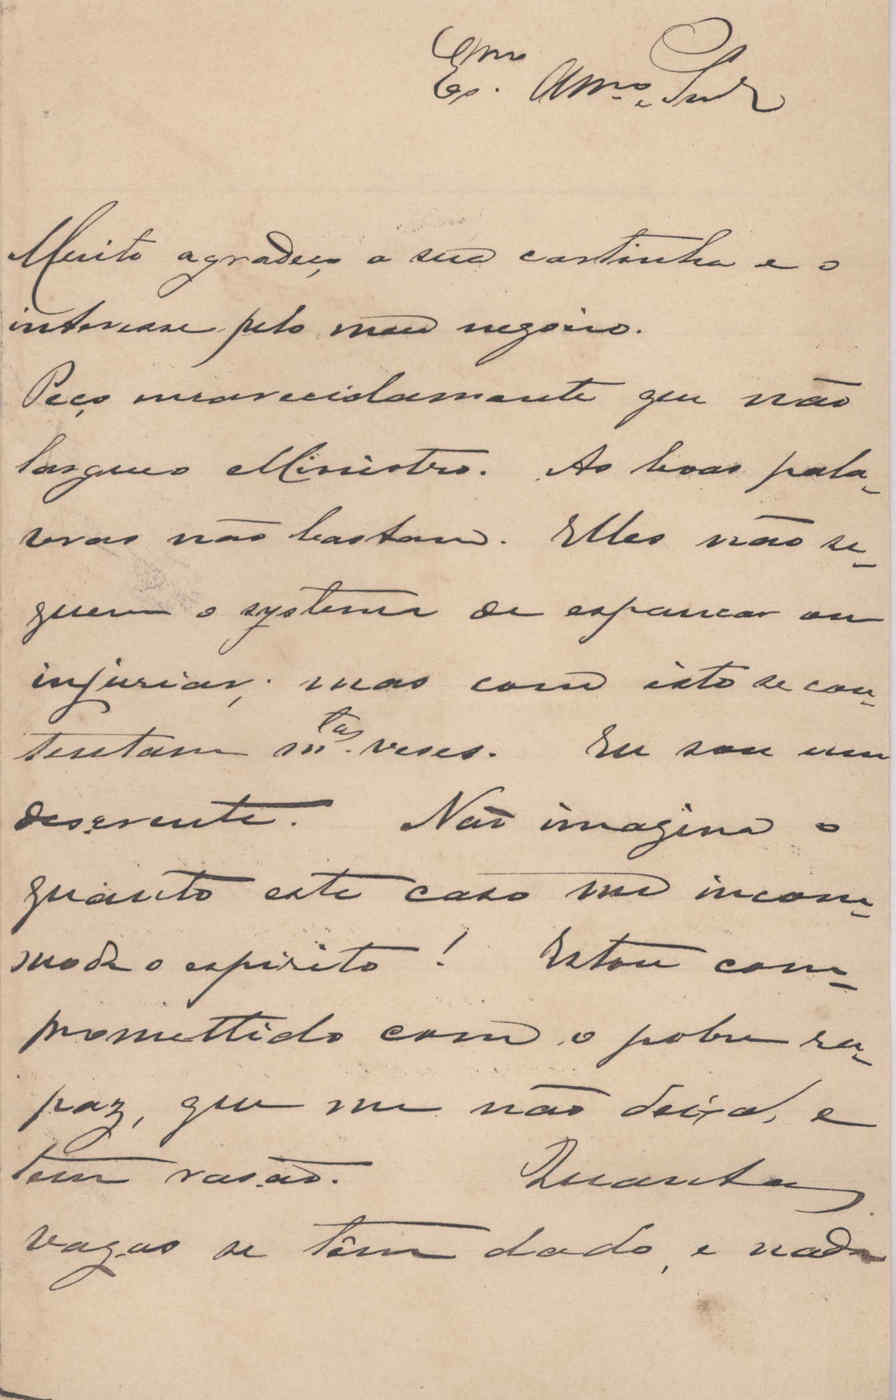 Exmo. Amo. e Snr
Muito agradeço a sua cartinha e o
interesse pelo meu negocio.
Peço encarecidamente que não
largue o Ministro. As boas pala-
vras não bastam. Elles não se-
guem o systema de espancar ou
injuriar; mas com isto se con-
tentam mtas. veses. Eu sou um
descrente. Não imagina o
quanto este caso me incom-
moda o espirito! Estou com-
promettido com o pobre ra-
paz, que me não deixa, e
tem rasão. Quantas
vagas se têm dado, e nada